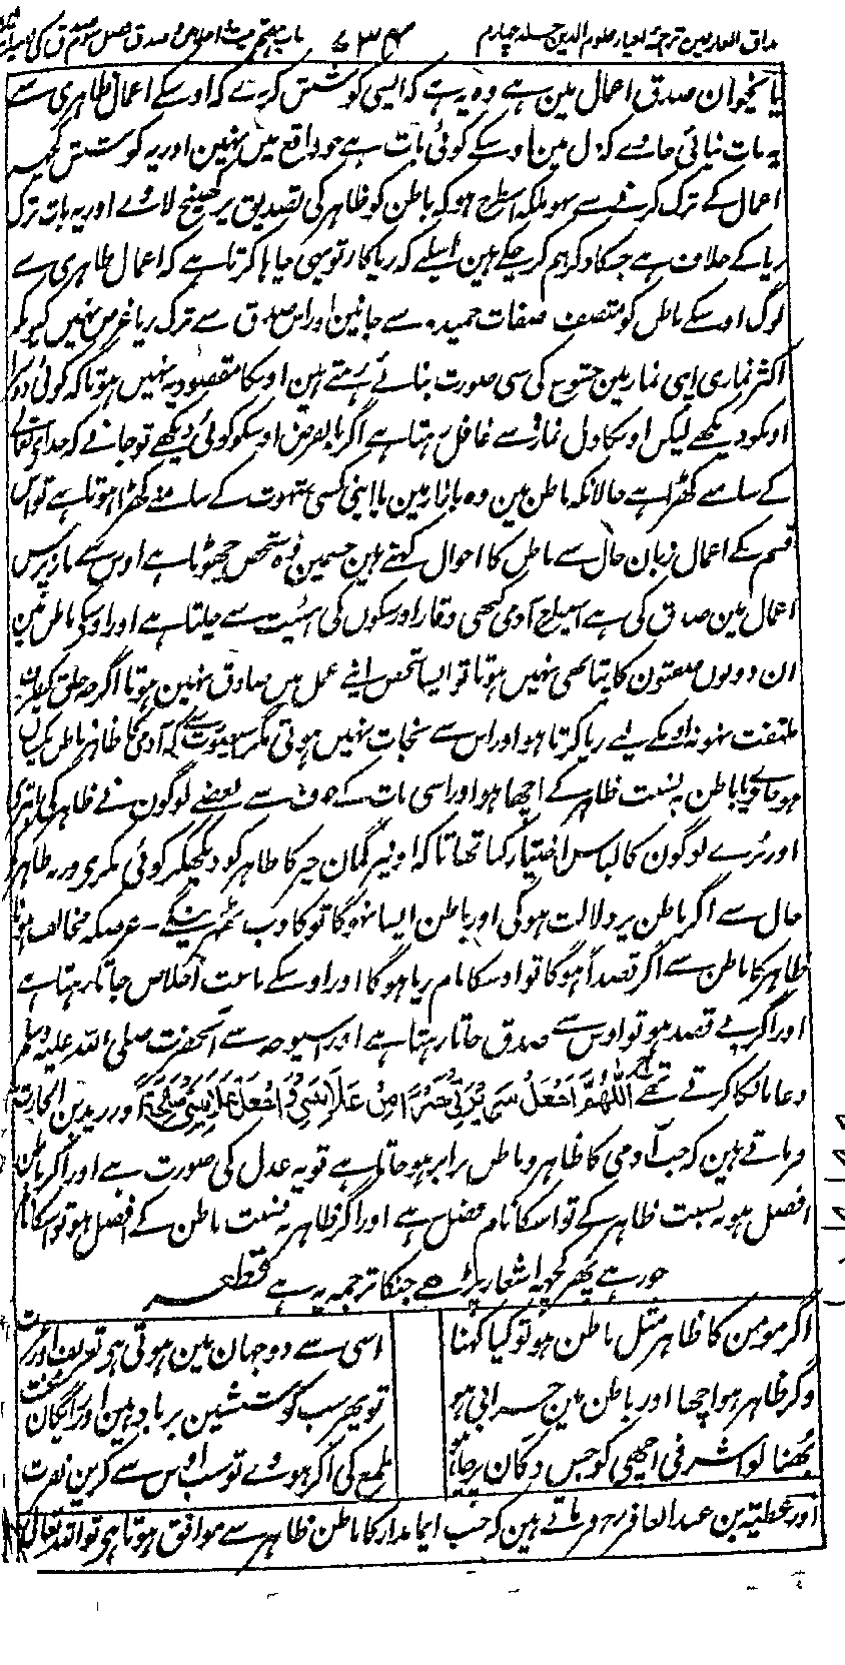 مذاق العارفین ترجمۂ احیاء علوم الدین جلد چہارم
پانچوان صدق اعمال مین ہے وہ یہ ہے کہ ایسی کوشش کرے کہ اوسکے اعمال ظاہری سے
یہ بات نپائی جاوے کہ دل مین اوسکے کوئی بات ہے جو واقع میں نہین اور یہ کوشش کچھ
اعمال کے ترک کرنے سے نہو بلکہ اسطرح ہو کہ باطن کو ظاہر کی تصدیق پر کھینچ لاوے اور یہ بات ترک
ریا کے خلاف ہے جسکا ذکر ہم کر چکے ہین اسلیے کہ ریاکار تو یہی چاہا کرتا ہے کہ اعمال ظاہری سے
لوگ اوسکے باطن کو متصف صفات حمیدہ سے جانین اور اس صدق سے ترک ریا غرض نہیں کیونکہ
اکثر نمازی اپنی نماز مین خشوع کی سی صورت بنائے رہتے ہین اوسکا مقصود یہ نہیں ہوتا کہ کوئی دوسرا
اوسکو دیکھے لیکن اوسکا دل نماز سے غافل رہتا ہے اگر بالفرض اوسکو کوئی دیکھے تو جانے کہ خدای تعالے
کے سامنے کھڑا ہے حالانکہ باطن مین وہ بازار مین یا اپنی کسی شہوت کے سامنے کھڑا ہوتا ہے تو اس
قسم کے اعمال زبان حال سے باطن کا احوال کہتے ہین جسمین وہ شخص جھوٹا ہے اوس سے باز پرس
اعمال مین صدق کی ہے اسیطرح آدمی کبھی وقار اور سکون کی ہیئت سے چلتا ہے اور اوسکے باطن مین
ان دونوں صفتون کا پتا بھی نہیں ہوتا تو ایسا شخص اپنے عمل میں صادق نہین ہوتا اگرچہ خلق کیطرف
ملتفت نہو نہ اونکے لیے ریا کرتا ہو اور اس سے نجات نہیں ہوتی مگر اسیصورت سے کہ آدمی کا ظاہر باطن یکسان
ہو جاوے یا باطن بہ نسبت ظاہر کے اچھا ہو اور اسی بات کے خوف سے بعضے لوگون نے ظاہر کی ابتری
اور بُرے لوگون کا لباس اختیار کیا تھا تاکہ اونپر گمان خیر کا ظاہر کو دیکھکر کوئی نکرے ورنہ ظاہر کے
حال سے اگر باطن پر دلالت ہوگی اور باطن ایسا نہوگا تو کاذب ٹھہرینگے - غرضکہ مخالف ہونا
ظاہر کا باطن سے اگر قصداً ہوگا تو اوسکا نام ریا ہوگا اور اوسکے باعث اخلاص جاتا رہتا ہے
اور اگر بے قصد ہو تو اوس سے صدق جاتا رہتا ہے اور اسیوجہ سے آنحضرت صلی اللہ علیہ وسلم
دعا مانگا کرتے تھے اَللّٰهُمَّ اجْعَلْ سَرِيْرَتِيْ خَيْرًا مِنْ عَلَانِيَتِيْ وَاجْعَلْ عَلَانِيَتِيْ صَالِحَةً اور زید بن الحارث
فرماتے ہین کہ جب آدمی کا ظاہر و باطن برابر ہو جاتا ہے تو یہ عدل کی صورت ہے اور اگر باطن
افضل ہو بہ نسبت ظاہر کے تو اسکا نام فضل ہے اور اگر ظاہر بہ نسبت باطن کے افضل ہو تو اسکا نام
جور ہے پھر کچھ یہ اشعار پڑھے جنکا ترجمہ یہ ہے قطعہ
اگر مومن کا ظاہر مثل باطن ہو تو کیا کہنا
اسی سے دو جہان مین ہوتی ہو تعریف اور
وگر ظاہر ہو اچھا اور باطن مین خرابی ہو
تو پھر سب کوششین برباد ہین اور رائگان
بھُنا لو اشرفی اچھی کو جس دکان پر جاؤ
ملمع کی اگر ہووے تو سب اوس سے کرین نفرت
اور عطیہ بن عبد الغافر رح فرماتے ہین کہ جب ایماندار کا باطن ظاہر سے موافق ہوتا ہی تو اللہ تعالی